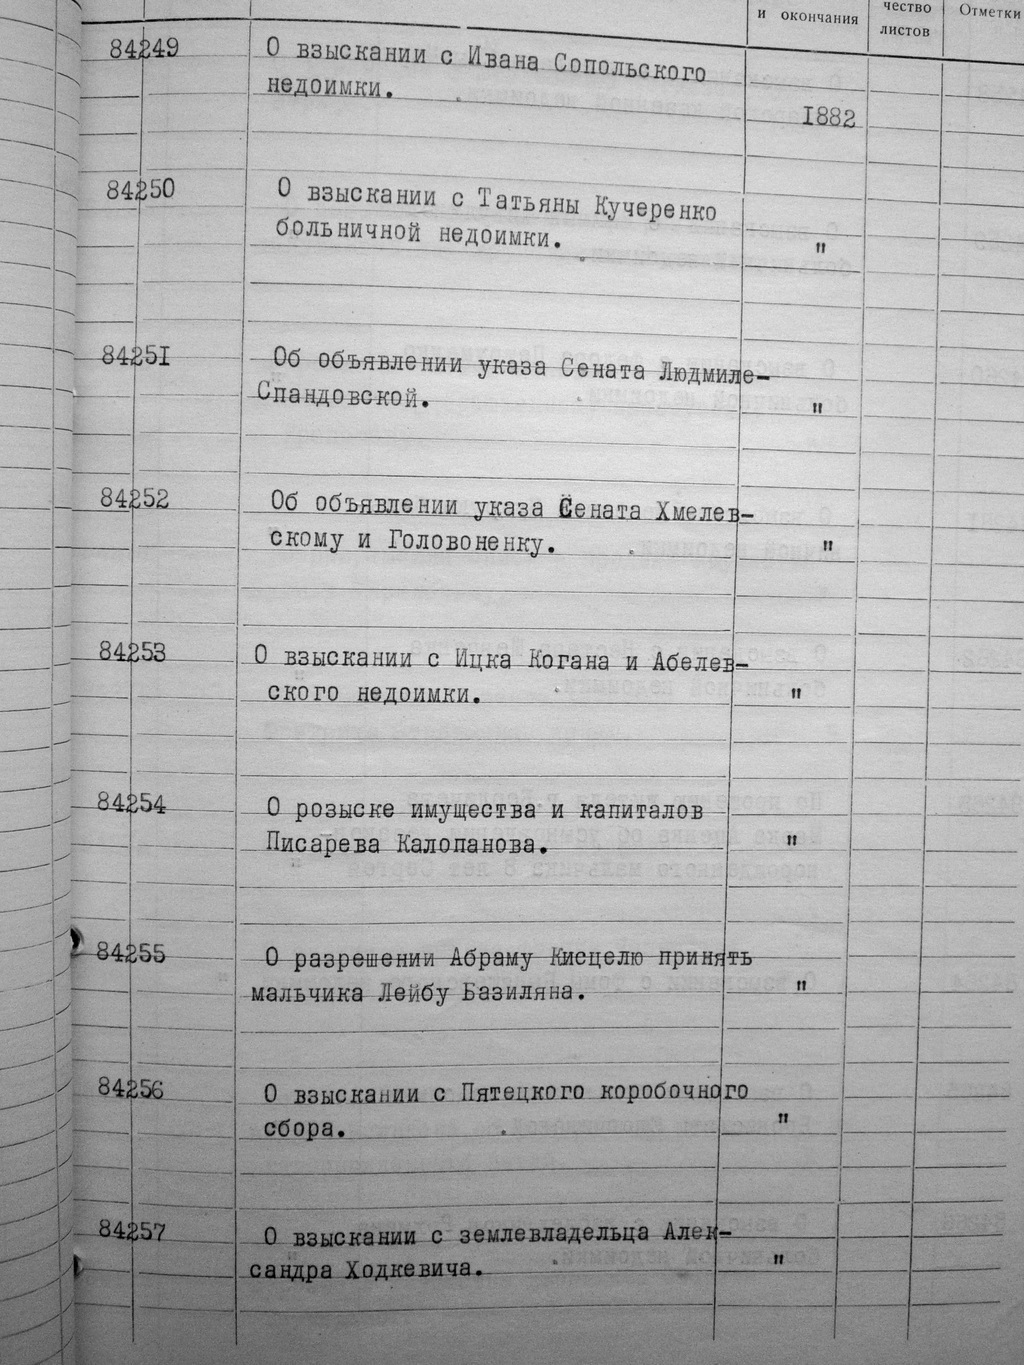 и окончания
чество
листов
Отметки
84249
О взыскании с Ивана Сопольского
недоимки.
1882
84250
О взыскании с Татьяны Кучеренко
больничной недоимки.
"
84251
Об объявлении указа Сената Людмиле-
Спандовской.
"
84252
Об объявлении указа Сената Хмелев-
скому и Головоненку.
"
84253
О взыскании с Ицка Когана и Абелев-
ского недоимки.
"
84254
О розыске имущества и капиталов
Писарева Калопанова.
"
84255
О разрешении Абраму Кисцелю принять
мальчика Лейбу Базиляна.
"
84256
О взыскании с Пятецкого коробочного
сбора.
"
84257
О взыскании с землевладельца Алек-
сандра Ходкевича.
"